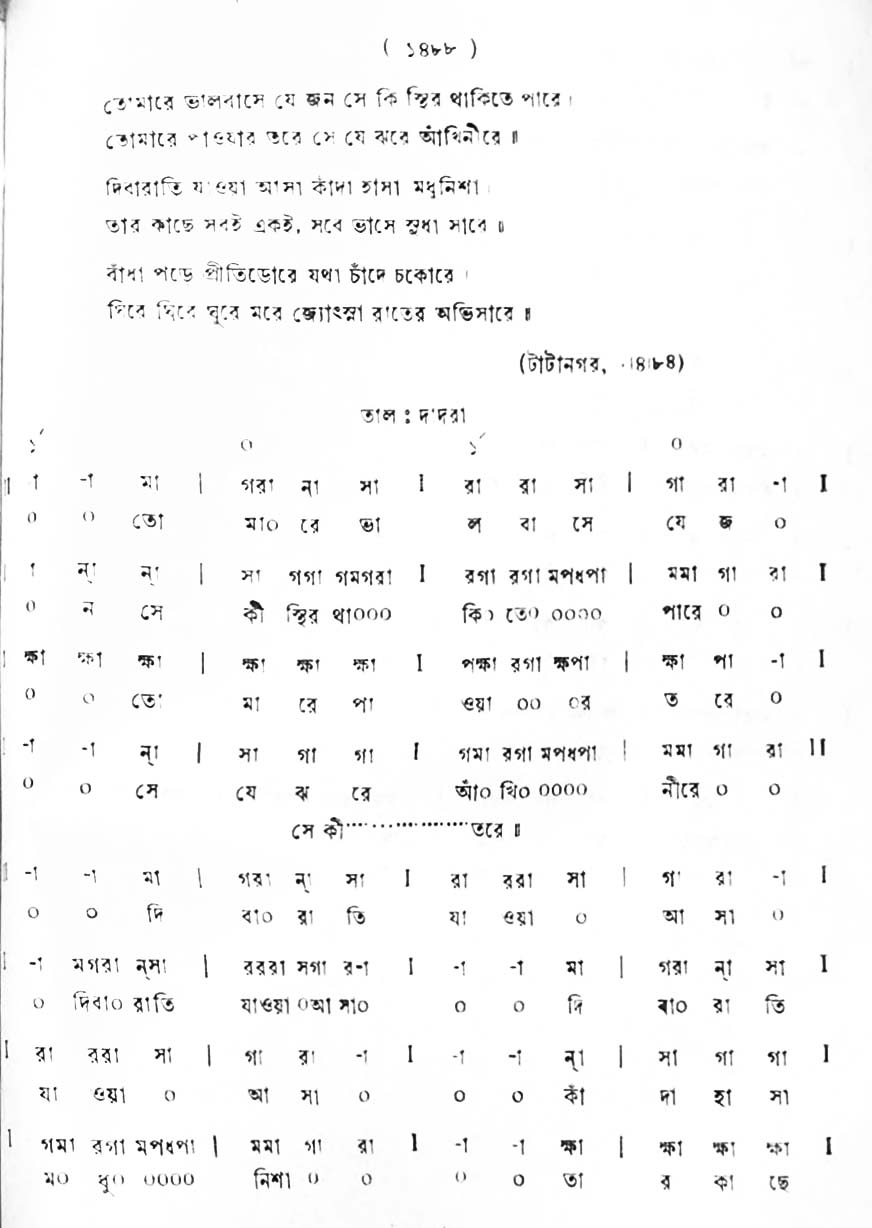 ( ১৪৮৮ )
তোমারে ভালবাসে যে জন সে কি স্থির থাকিতে পারে।
তোমারে পাওয়ার তরে সে যে ঝরে আঁখিনীরে॥
দিবারাতি যাওয়া আসা কাঁদা হাসা মধুনিশা।
তার কাছে সবই একই, সবে ভাসে সুধা সারে॥
বাঁধা পড়ে প্রীতিডোরে যথা চাঁদে চকোরে।
ঘিরে ঘিরে ঘুরে মরে জ্যোৎস্না রাতের অভিসারে॥
(টাটানগর, ৪।৮৪)
তাল : দাদরা
১´ ০ ১´ ০
॥ া -া মা | গরা ন্া সা I রা রা সা | গা রা -া I
০ ০ তো মা০ রে ভা ল বা সে যে জ ০
| া ন্া ন্া | সা গগা গমগরা I রগা রগা মপধপা | মমা গা রা I
০ ন সে কী স্থির থা০০০ কি০ তে০ ০০০০ পারে ০ ০
| ক্ষা ক্ষা ক্ষা | ক্ষা ক্ষা ক্ষা I পক্ষা রগা ক্ষপা | ক্ষা পা -া I
০ ০ তো মা রে পা ওয়া ০০ ০র ত রে ০
| -া -া ন্া | সা গা গা I গমা রগা মপধপা | মমা গা রা II
০ ০ সে যে ঝ রে আঁ০ খি০ ০০০০ নীরে ০ ০
সে কী··················তরে॥
I -া -া মা | গরা ন্া সা I রা ররা সা | গা রা -া I
০ ০ দি বা০ রা তি যা ওয়া ০ আ সা ০
I -া মগরা ন্সা | রররা সগা র-া I -া -া মা | গরা ন্া সা I
০ দিবা০ রাতি যাওয়া ০আ সা০ ০ ০ দি বা০ রা তি
I রা ররা সা | গা রা -া I -া -া ন্া | সা গা গা I
যা ওয়া ০ আ সা ০ ০ ০ কাঁ দা হা সা
I গমা রগা মপধপা | মমা গা রা I -া -া ক্ষা | ক্ষা ক্ষা ক্ষা I
ম০ ধু০ ০০০০ নিশা ০ ০ ০ ০ তা র কা ছে